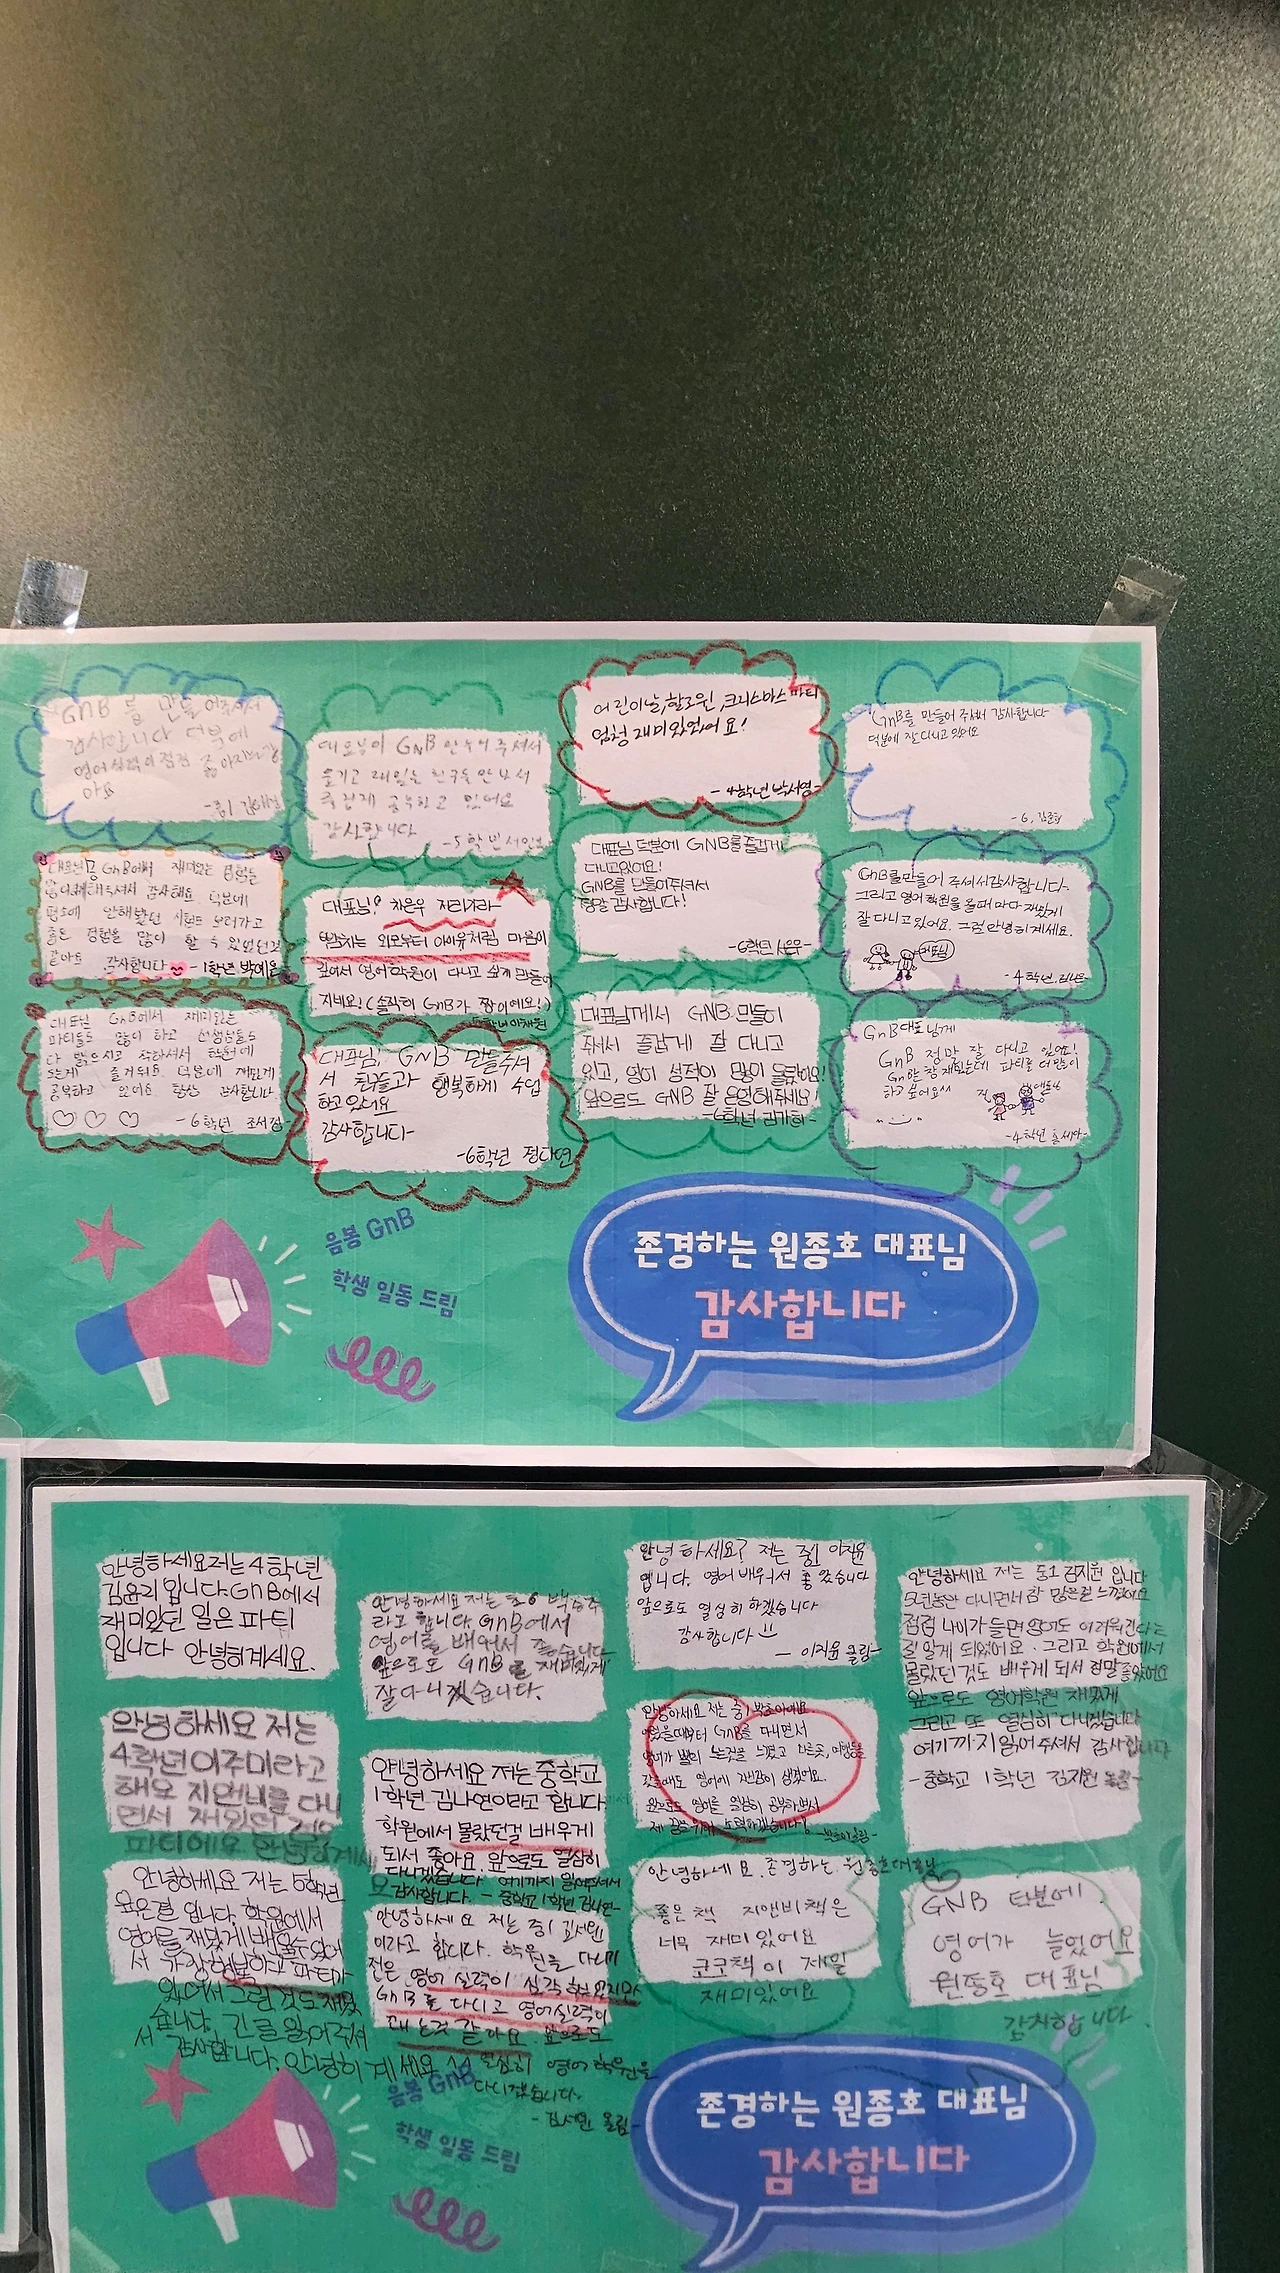 GnB 를 만들어주셔서
감사합니다 덕분에
영어실력이 점점 좋아지는
-중1
대표님이 GNB 만들어 주셔서
즐겁게 공부하고 있어요
감사합니다
-5학년
어린이날,할로윈,크리스마스 파티
엄청 재미있었어요!
-4학년 박서영-
GnB를 만들어 주셔서 감사합니다
덕분에 잘 다니고 있어요
-6.
대표님 GnB에서 재미있는 경험을
많이해주셔서 감사해요. 덕분에
평소에 안해봤던
좋은 경험을 많이 할 수 있었던것
같아요 감사합니다 -1학년 박예은
대표님! 차은우 저리가라
원장님은 외모부터 아이유처럼 마음이
깊어서 영어학원이 다니고 싶게 만들어
지네요! (솔직히 GnB가 짱이에요!)
대표님 덕분에 GNB를 즐겁게
다니고있어요!
GNB를 만들어주셔서
정말 감사합니다!
-6학년
GnB를 만들어 주셔서 감사합니다-
그리고 영어 학원을 올때마다 재밌게
잘 다니고 있어요. 그럼 안녕히 계세요.
-4학년
대표님 GnB에서 재미있는
파티들도 많이 하고 선생님들도
다 밝으시고 착하셔서 학원에
오는게 즐거워요. 덕분에 재밌게
공부하고 있어요 항상 감사합니다
-6학년 조서정-
대표님! GNB 만들어주셔
서 친구들과 행복하게 수업
하고있어요
감사합니다-
-6학년 정다연
대표님께서 GNB 만들어
주셔서 즐겁게 잘 다니고
있고, 영어 성적이 많이 올랐어요!
앞으로도 GNB 잘 운영해주세요!
-6학년 김가하-
GnB 대표님께
GnB 정말 잘 다니고 있어요!
GnB 참 재밌는데 파티를 더 많이
하고 싶어요
-4학년
음봉 GnB
학생 일동 드림
존경하는 원종호 대표님
감사합니다
안녕하세요 저는 4학년
김윤리 입니다. GnB에서
재미있던 일은 파티
입니다 안녕히계세요.
안녕하세요 저는 초6
라고 합니다. GnB에서
영어를 배워서 좋습니다
앞으로도 GnB를 재미있게
잘 다니겠습니다.
안녕하세요? 저는 중1 이지윤
입니다. 영어 배워서 좋았습니다
앞으로도 열심히 하겠습니다
감사합니다
- 이지윤 올림-
안녕하세요 저는 중1 김지원 입니다
5년동안 다니면서 참 많은걸 느꼈어요
점점 나이가 들면 영어도 어려워진다는
걸 알게 되었어요. 그리고 학원에서
몰랐던 것도 배우게 되서 정말 좋았어요
앞으로도 영어학원 재밌게
그리고 또 열심히 다니겠습니다
여기까지 읽어 주셔서 감사합니다
-중학교 1학년 김지원 올림-
안녕하세요 저는
4학년 이주미라고
해요 지앤비를 다니
면서 재밌던 것은
파티에요 안녕히계세
안녕하세요 저는 중학교
1학년 김나연이라고 합니다.
학원에서 몰랐던걸 배우게
되서 좋아요. 앞으로도 열심히
다니겠습니다 여기까지 읽어주셔서
감사합니다. - 중학교 1학년 김나연-
안녕하세요 저는 중1 박초아에요
GnB를 다니면서
영어가 많이 느는것을 느꼈고 다른곳, 여행을
갔을때도 영어에 자신감이 생겼어요.
앞으로도 영어를 열심히 공부하면서
안녕하세요 저는 5학년
윤은결 입니다. 학원에서
영어를 재밌게 배울수 있어
서 가장 행복하고 파티가
있어서 그런 것도 재밌
습니다. 긴글 읽어주셔
서 감사합니다. 안녕히 계세요
안녕하세요 저는 중1 김서연
이라고 합니다. 학원을 다니기
전은 영어 실력이 심각 하였지만
GnB를 다니고 영어실력이
는것 같아요. 앞으로도
열심히 영어 학원을
다니겠습니다.
-김서연 올림-
안녕하세요. 존경하는 원종호대표님
좋은책 지앤비책은
너무 재미있어요
코코책이 제일
재미있어요
GNB 덕분에
영어가 늘었어요
원종호 대표님
감사합니다.
음봉 GnB
학생 일동 드림
존경하는 원종호 대표님
감사합니다